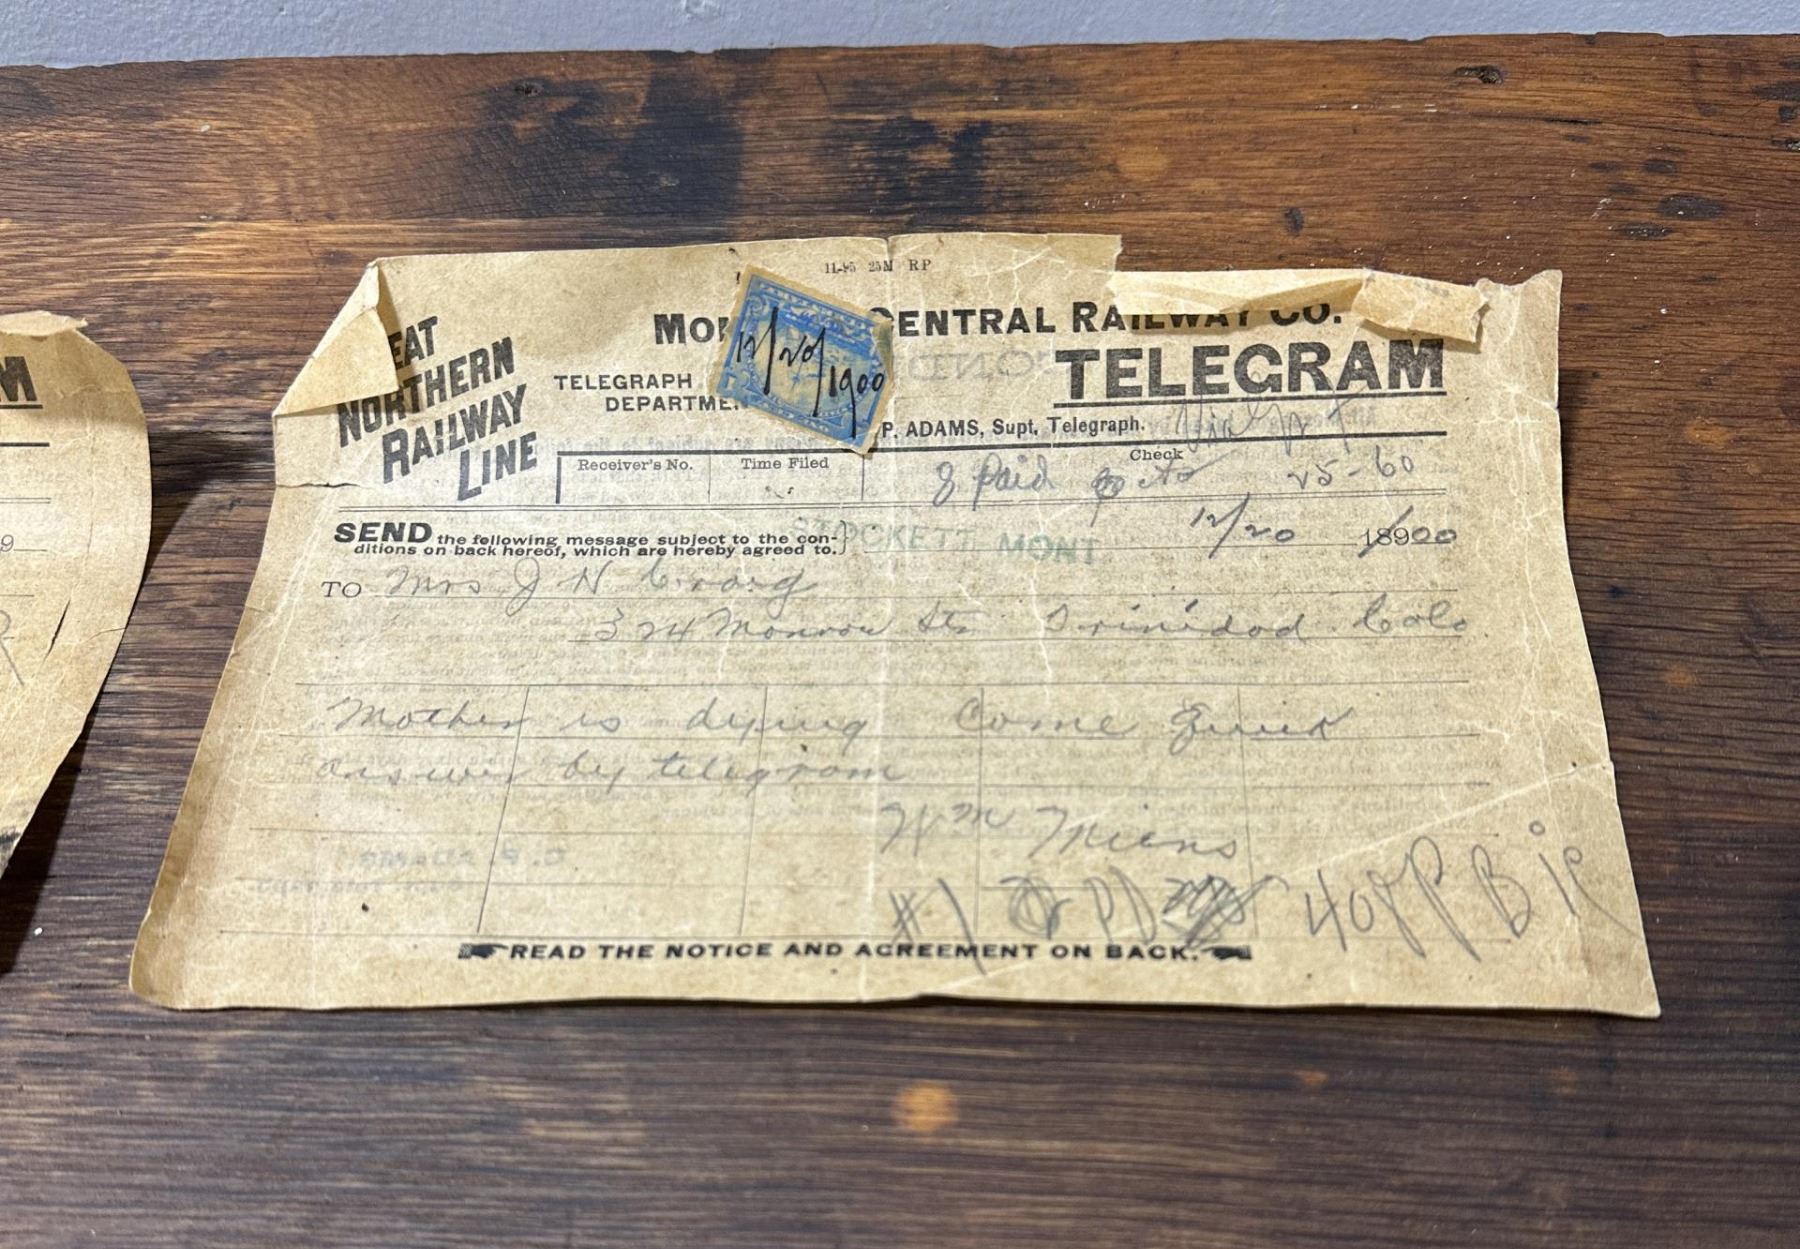 11-95 25M RP
EAT
NORTHERN
RAILWAY
LINE
MO ENTRAL RAILWAY CO.
TELEGRAPH
DEPARTME
TELEGRAM
P. ADAMS, Supt. Telegraph.
12/20/1900
Receiver's No. Time Filed Check
8 Paid 25-60
SEND the following message subject to the con-
ditions on back hereof, which are hereby agreed to.
STOCKETT MONT
12/20 18900
TO Mrs J N Craig
324 Monroe St Trinidad Colo
Mother is dying Come Quick
answer by telegram
Wm Miens
#1
408P B
READ THE NOTICE AND AGREEMENT ON BACK.
M
9